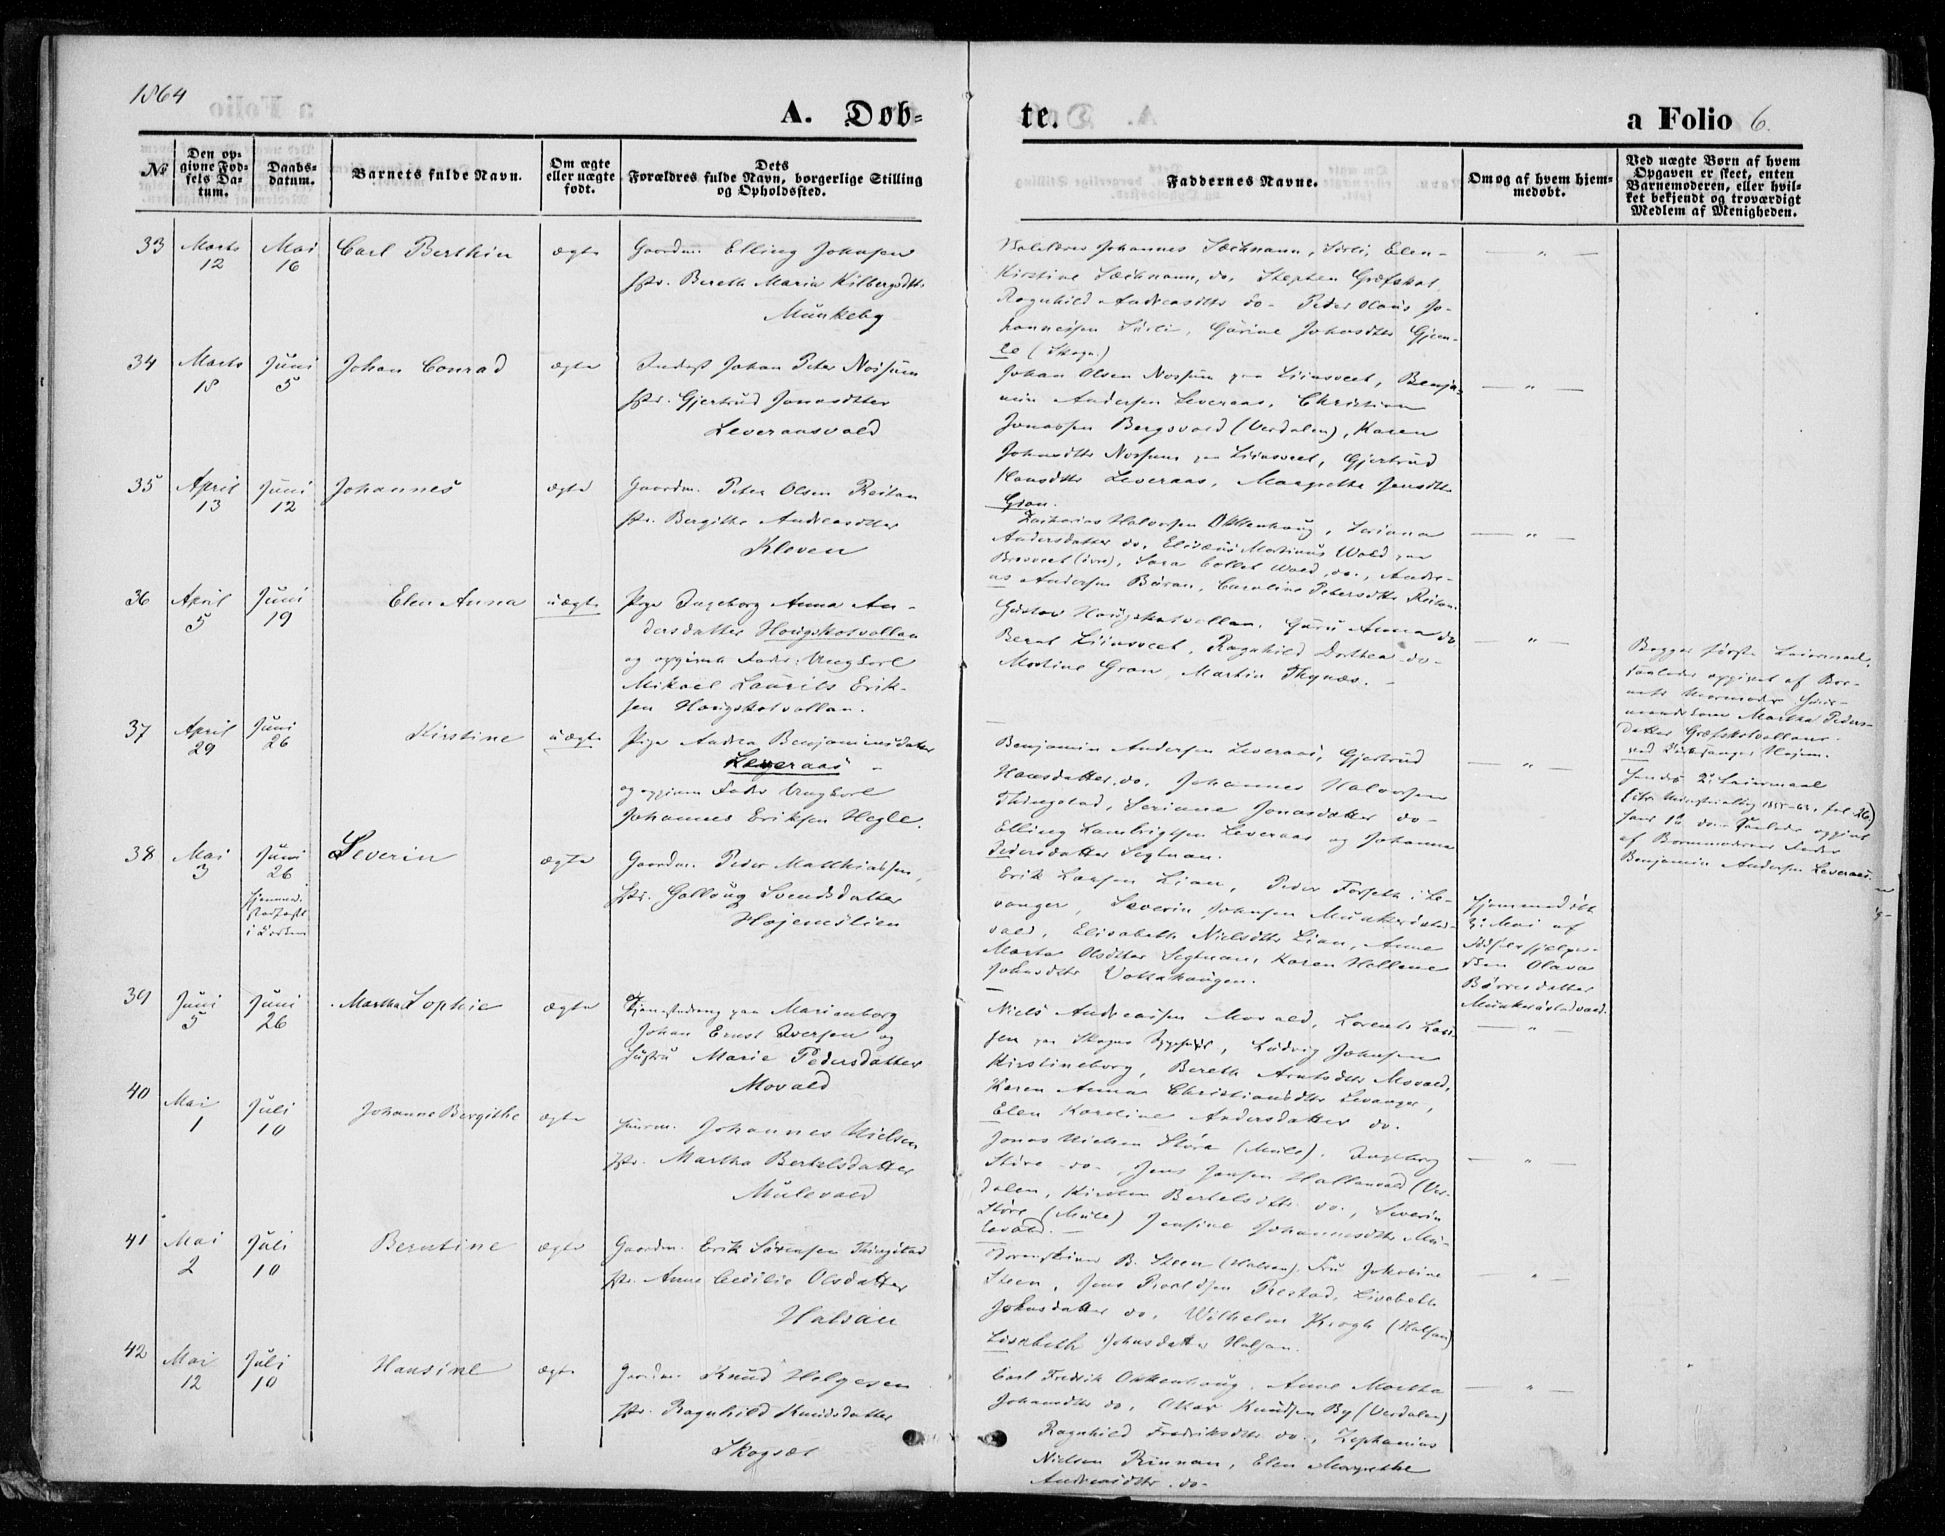 1864
A. Døb-
te.
a Folio 6.
№
Den op-
givne Fød-
sels Da-
tum.
Daabs-
datum.
Barnets fulde Navn.
Om ægte
eller uægte
født.
Dets
Forældres fulde Navn, borgerlige Stilling
og Opholdssted.
Faddernes Navne.
Om og af hvem hjem-
medøbt.
Ved uægte Børn af hvem
Opgaven er skeet, enten
Barnemoderen, eller hvil-
ket bekjendt og troværdigt
Medlem af Menigheden.
33
Marts
12
Mai
16
Carl Berthin
ægte
Gaardm. Elling Johnsen
Bereth Maria
Munkeby
Johannes Elen
Kirstine do. Stephen Græfskot
Ragnhild Andreasdtr do - Peder Olaus Jo-
hannessen
(Skogn)
34
Marts
18
Juni
5
Johan Conrad
ægte
Johan Peter Nossum
Gjertrud Jonasdtter
Leveraasvald
Johan Olsen Nossum Benja-
min Andersen Leveraas, Christian
Jonassen Bergsvald (Verdalen), Karen
Johnsdtr Nossum Gjertrud
Hansdtr Leveraas, Margretha
Gran.
35
April
13
Juni
12
Johannes
ægte
Gaardm. Peter Olsen Reitan
Bergithe Andreasdtter
Kleven
Zacharias Halvorsen Okkenhaug, Seriana
Andersdatter do, Elisæus Martinus Wold
Sara Collet Wold do., Andre-
as Andersen Caroline Petersdtr Reitan.
36
April
5
Juni
19
Elen Anna
uægte
Pige Ingeborg Anna An-
dersdatter Hougskotvollan
og opgiven Fader: Ungkarl
Mikael Laurits Erik-
sen Hougskotvollan.
Gustav Hougskotvollan, Guru Anna do
Bernt Ragnhild Dorthea do-
Martine Gran, Martin Thynæs. -
Begges første Leiermaal,
saaledes opgivet af Bar-
nets Mormoder
Martha Peders-
datter Græfskotvollan
ved Kirkesanger Hojem.
37
April
29
Juni
26
Kirstine
uægte
Pige Andrea Benjaminsdatter
Leveraas -
og opgiven Fader Ungkarl
Johannes Eriksen Hegle.
Benjamin Andersen Leveraas, Gjertrud
Hansdatter do, Johannes Halvorsen
Thingstad, Seriane Jonasdatter do-
Elling Lambrigtsen Leveraas og Johanna
Pedersdatter Segtnan.
Hendes 2. Leiermaal
hans 1ste do - Saaledes opgivet
af Barnemoderens Fader
Benjamin Andersen Leveraas.
38
Mai
3
Juni
26
Hjemmed.
stadfæst
i Kirken
Severin
ægte
Gaardm. Peder Matthiassen,
Gollaug Svendsdatter
Højemslien
Erik Larsen Lian, Peder Forseth i Le-
vanger, Severin Johnsen Munkerøstad-
vald, Elisabeth Nielsdtr Lian, Anne
Marta Olsdtter Segtnan, Karen Hellene
Johnsdtr Voktahaugen.
Hjemmedøbt
3. Mai af
Fødselshjælper-
sken Olava
Børresdatter
Munkerøstadvald.
39
Juni
5
Juni
26
Martha Sophie
ægte
Marienborg
Johan Ernst Iversen og
Hustru Marie Pedersdatter
Movald
Niels Andreassen Movald, Lorents Lar-
sen paa Skogns Ludvig Johnsen
Kirstineborg, Bereth Arntsdtr Movald,
Karen Anna Christiansdtr Levanger,
Elen Karoline Andersdatter do.
40
Mai
1
Juli
10
Johanne Bergithe
ægte
Huusm. Johannes Nielsen
Martha Bertelsdatter
Mulevald
Jonas Nielsen Støre (Mule), Ingeborg
Støre do-, Jens Jensen Hallanvald (Ver-
dalen, Kirsten Bertelsdtr do., Severin
Støre (Mule) Jensine Johannesdtr Mu-
levald. -
41
Mai
2
Juli
10
Berntine
ægte
Gaardm. Erik Sørensen Thingstad
Anne Cecilie Olsdatter
Halsan
B. Steen (Halsan), Fru Jakobine
Steen, Jens Lisabeth
Johnsdatter do, Wilhelm Krogh (Halsan)
Lisabeth Johnsdatter Halsan.
42
Mai
12
Juli
10
Hansine
ægte
Gaardm. Knud Helgesen
Ragnhild Knudsdatter
Skogsæt
Carl Fredrik Okkenhaug, Anne Martha
Johansdtr do, Okar Knudsen By (Verdalen)
Ragnhild Fredriksdtr do., Zephanias
Nielsen Rinnan, Elen Margrethe
Andreasdtr do-